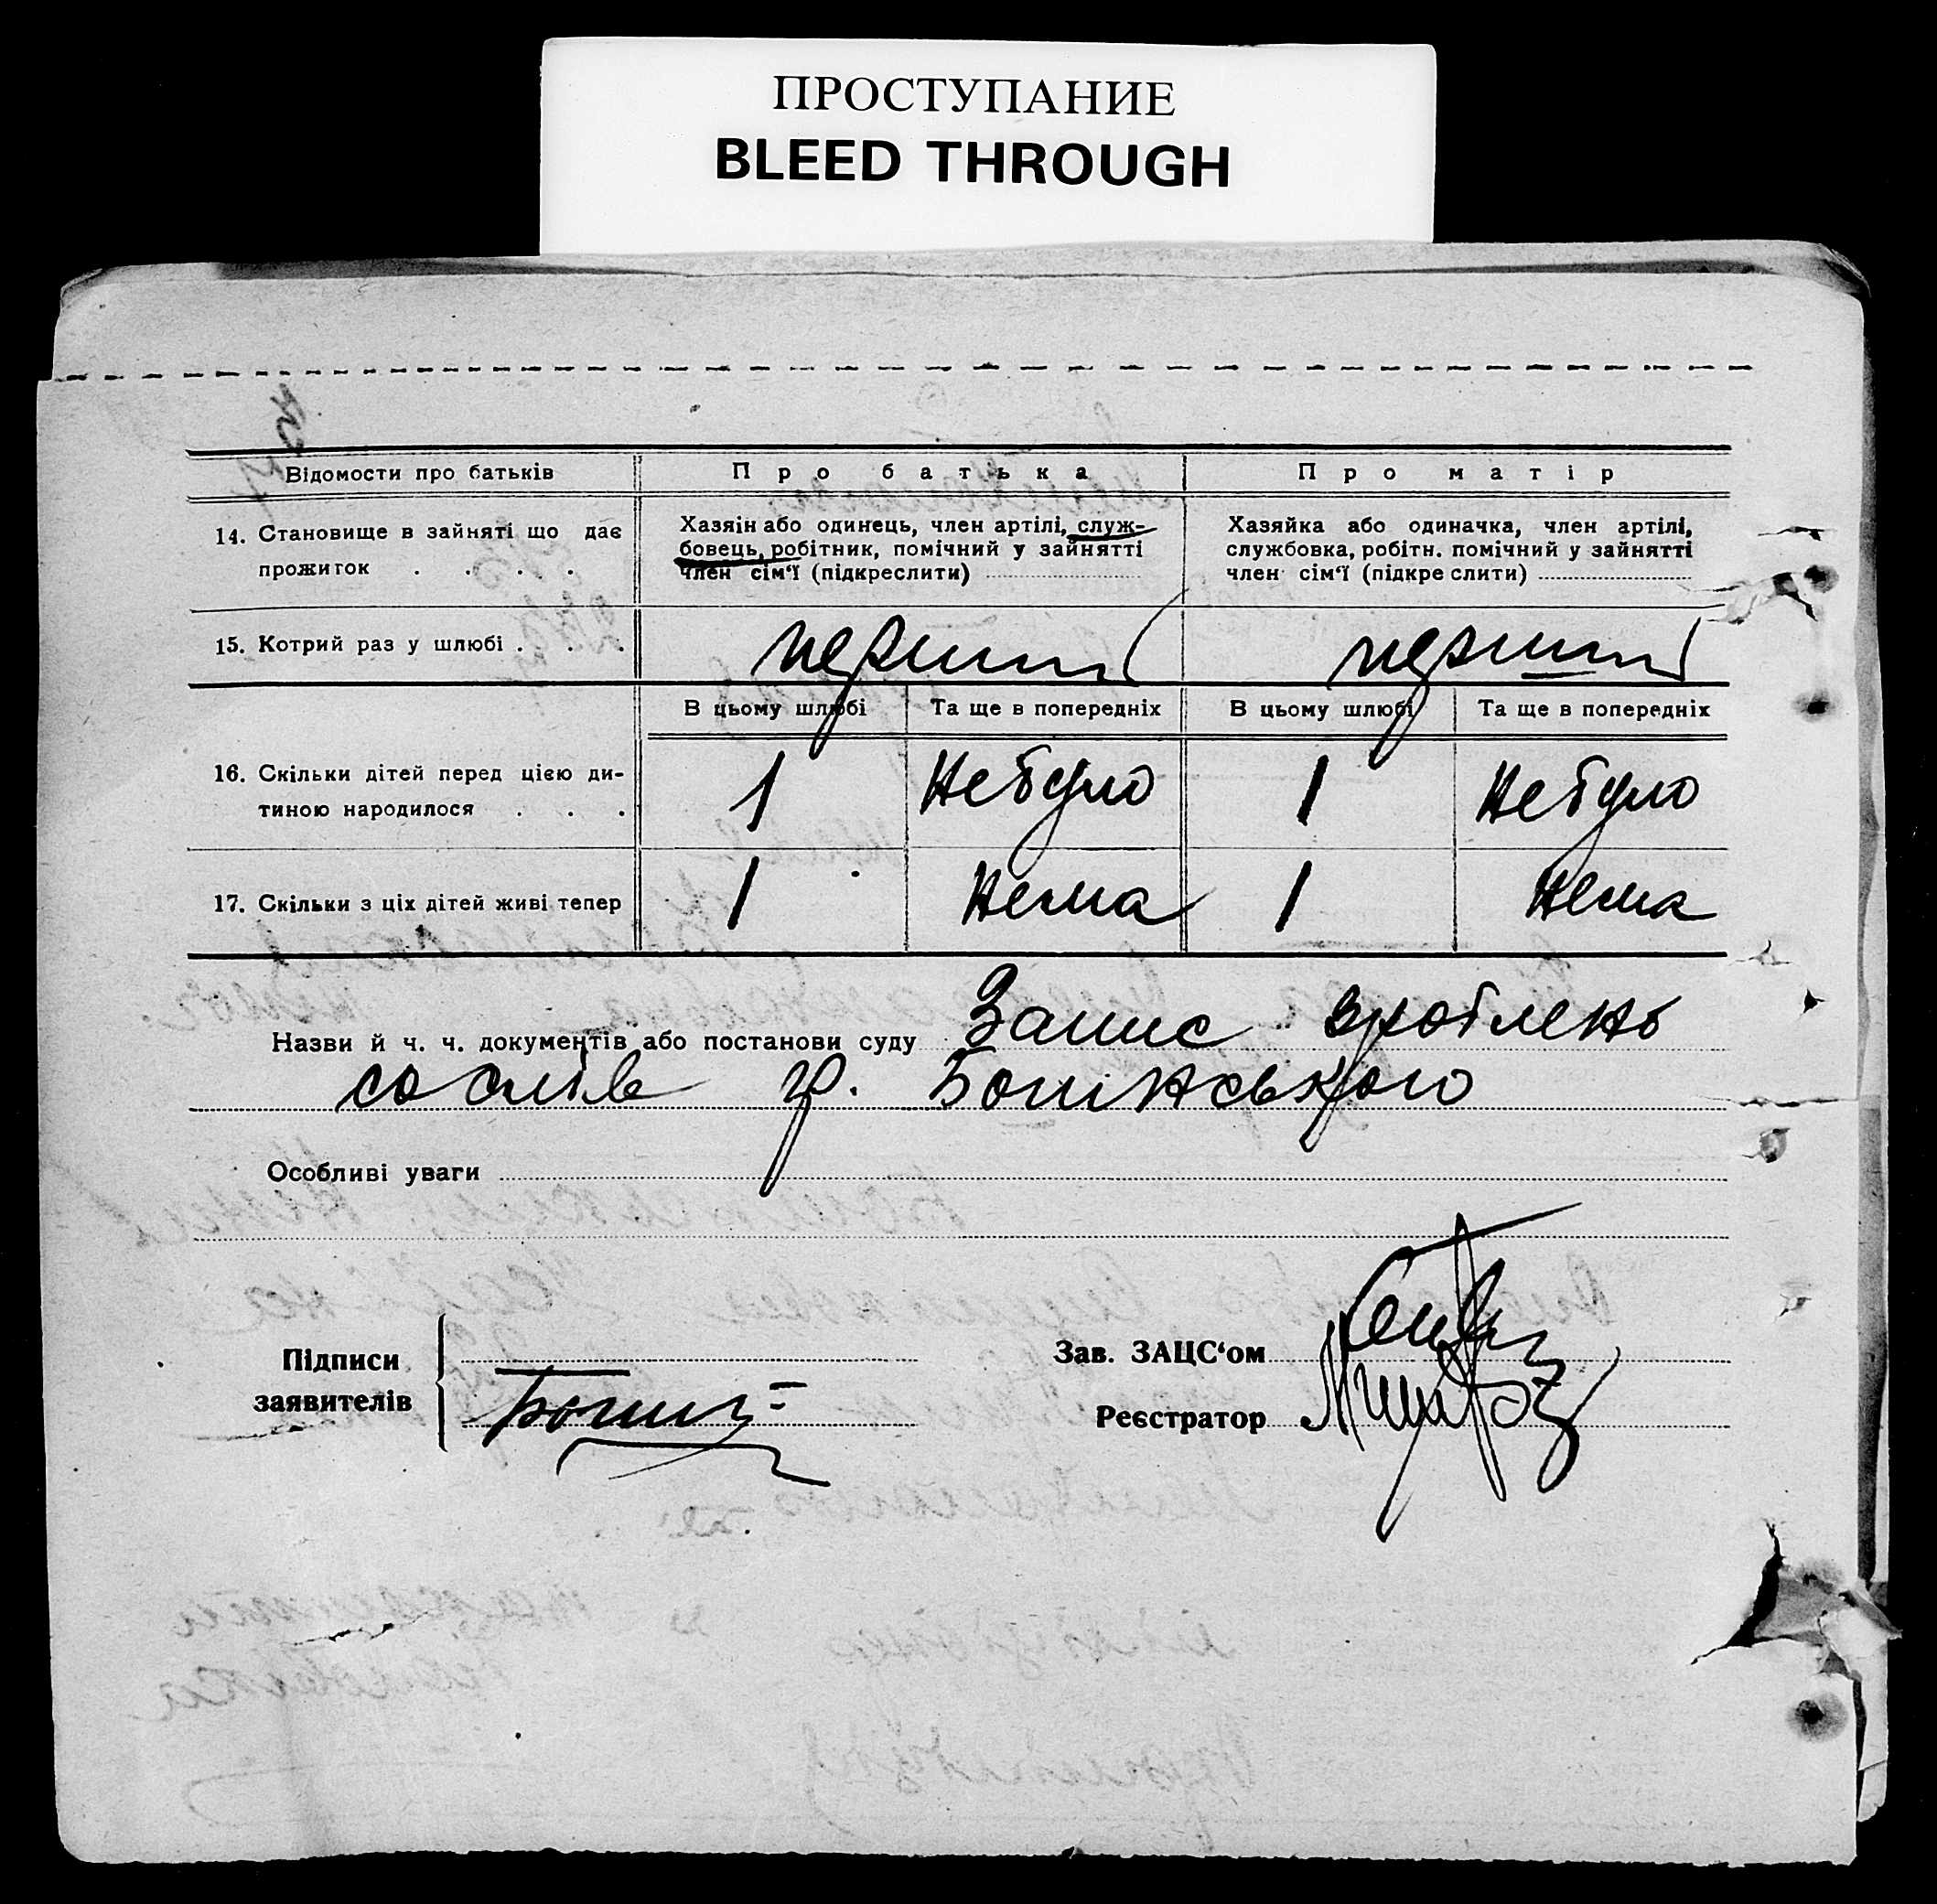 ПРОСТУПАНИЕ
BLEED THROUGH
Відомости про батьків Про батька Про матір
14. Становище в зайняті що дає прожиток . . . .
Хазяін або одинець, член артілі, служ-
бовець, робітник, помічний у зайнятті
член сім‘ї (підкреслити)
Хазяйка або одиначка, член артілі,
службовка, робітн. помічний у зайнятті
член сім‘ї (підкреслити)
15. Котрий раз у шлюбі . . . перший перший
В цьому шлюбі Та ще в попередніх В цьому шлюбі Та ще в попередніх
16. Скільки дітей перед цією ди-
тиною народилося . . . 1 Не було 1 Не було
17. Скільки з ціх дітей живі тепер 1 Нема 1 Нема
Назви й ч. ч. документів або постанови суду Запис зроблень
со слів гр.
Особливі уваги
Підписи
заявителів
Зав. ЗАЦС‘ом
Реєстратор